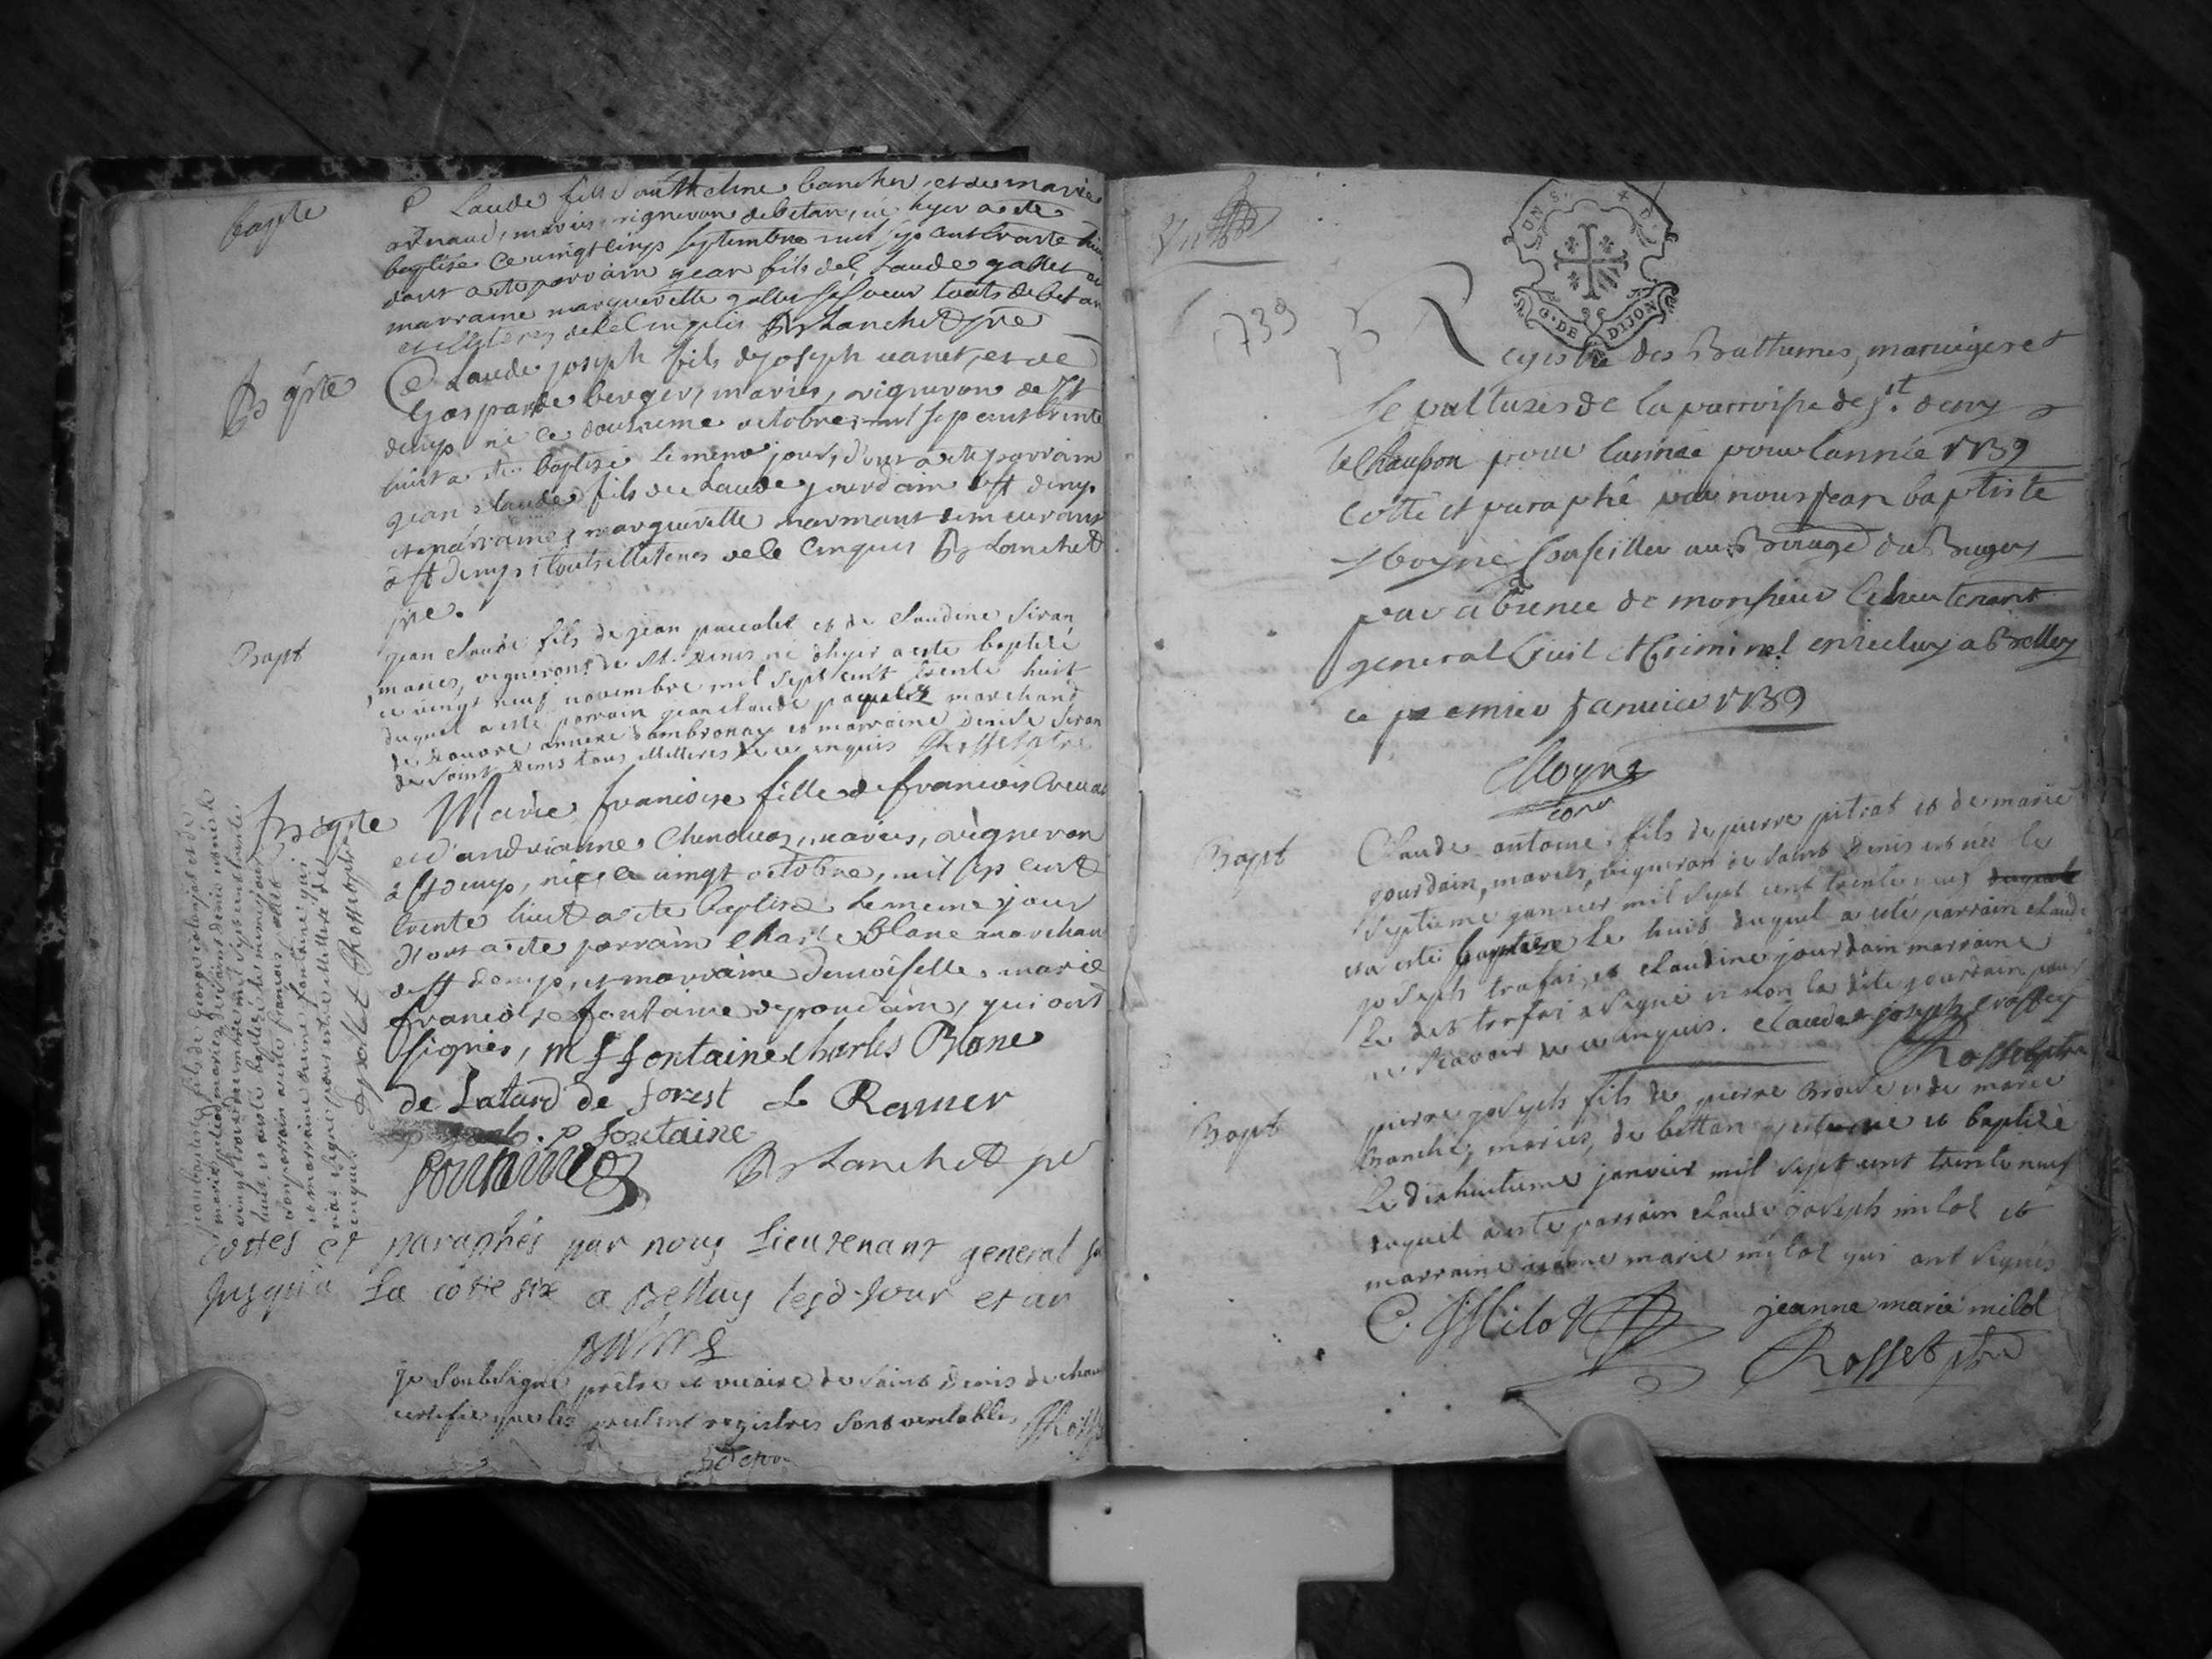 bapte
Claude fille d'anthelme bancher et de marie
arnaud, mariés, vigneron de betan, né hyer a ete
baptisé ce vingt cinq septembre mil sept cent trante huit
dont a ete parrain jean fils de Claude gallet et
marraine marguerette gallet sa soeur touts de betan
et illiteres de ce enquis Blanchet ptre
Bapte
Claude joseph fils de joseph vanet, et de
Gasparde berger, mariés, vigneron de St
denys né ce douzieme octobre mil sept cent trente
huit a ete baptisé le meme jour, dont a ete parrain
jean claude fils de claude jourdain de st denys
et marraine marguerette marmant demeurant
a st denys, touts illiteres de ce enquis Blanchet
ptre.
Bapt
jean claude fils de jean pascalet et de Claudine Siran
mariés, vignerons de St. denis né d'hyer a esté baptisé
ce vingt neuf novembre mil sept cent trente huit
duquel a esté parrain jean claude marchand
de douvre annexe d'ambronay et marraine denise Siran
de Saint denis tous illitteres de ce enquis Rosset ptre
Bapte
Marie francoise fille de francois
et d'andrianne mariés, vigneron
a st denys, née ce vingt octobre, mil sept cent
trente huit a ete baptisé le meme jour
dont a ete parrain Charle Blanc marchan
de st denys, et marraine demoiselle marie
francoise fontaine de poncdain, qui ont
signés, m f fontaine Charles Blanc
de Latard de forest L Ramer
p fontaine
Blanchet ptre
jean baptiste fils de George
marie mariez de saint denis est né le
vingt trois decembre mil sept cent trente
huit et a esté baptisé le meme jour
dont parrain a esté francois pollet
et marraine fontaine qui
n'ont signé pour estre illitteré de
ce enquis. pollet Rosset ptre
cottes et paraphés par nous Lieutenant general
jusqu'a La cotte six a Belley lesd. jour et an
je Soubsigné prêtre et vicaire de saint denis de chau
certifie que les presents registres sont veritables
1739
G. DE DIJON
Registre des Battemes, mariages et
sepultures de la parroisse de St. deny
le Chausson pour lannée pour lannée 1739
cotté et paraphé par nous jean baptiste
Moyne Conseiller au Bailage du Bugey
par absence de monsieur le lieutenant
general Civil et Criminel a Belley
ce premier janvier 1739
Moyne
Bapt
Claude antoine fils de pierre pitrat et de marie
jourdain, mariés, vigneron de saint denis est né le
septieme janvier mil sept cent trente neuf duquel
et a esté baptisé le huit duquel a esté parrain claude
joseph trafai, et claudine jourdain marraine
le dit trafai a signé et non la dite jourdain pour
ne scavoir de ce enquis. Claude joseph
Rosset ptre
Bapt
pierre joseph fils de pierre et de marie
manche, mariés, de bettan est né et baptisé
le dixhuitieme janvier mil sept cent trente neuf
duquel a esté parrain claude joseph milot et
marraine jeanne marie milot qui ont signés
C. J Milot jeanne marie milot
Rosset ptre